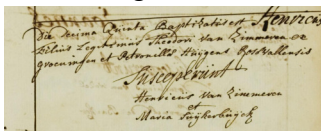 Die Decima Quinta Baptizatus est Henricus
Filius Legitimus Theodori Van Zimmeren ex
groeningen et Petronilla Huigens Rosvallensis
Susceperunt
Henricus Van Zimmeren
et
Maria Suykerbuyck